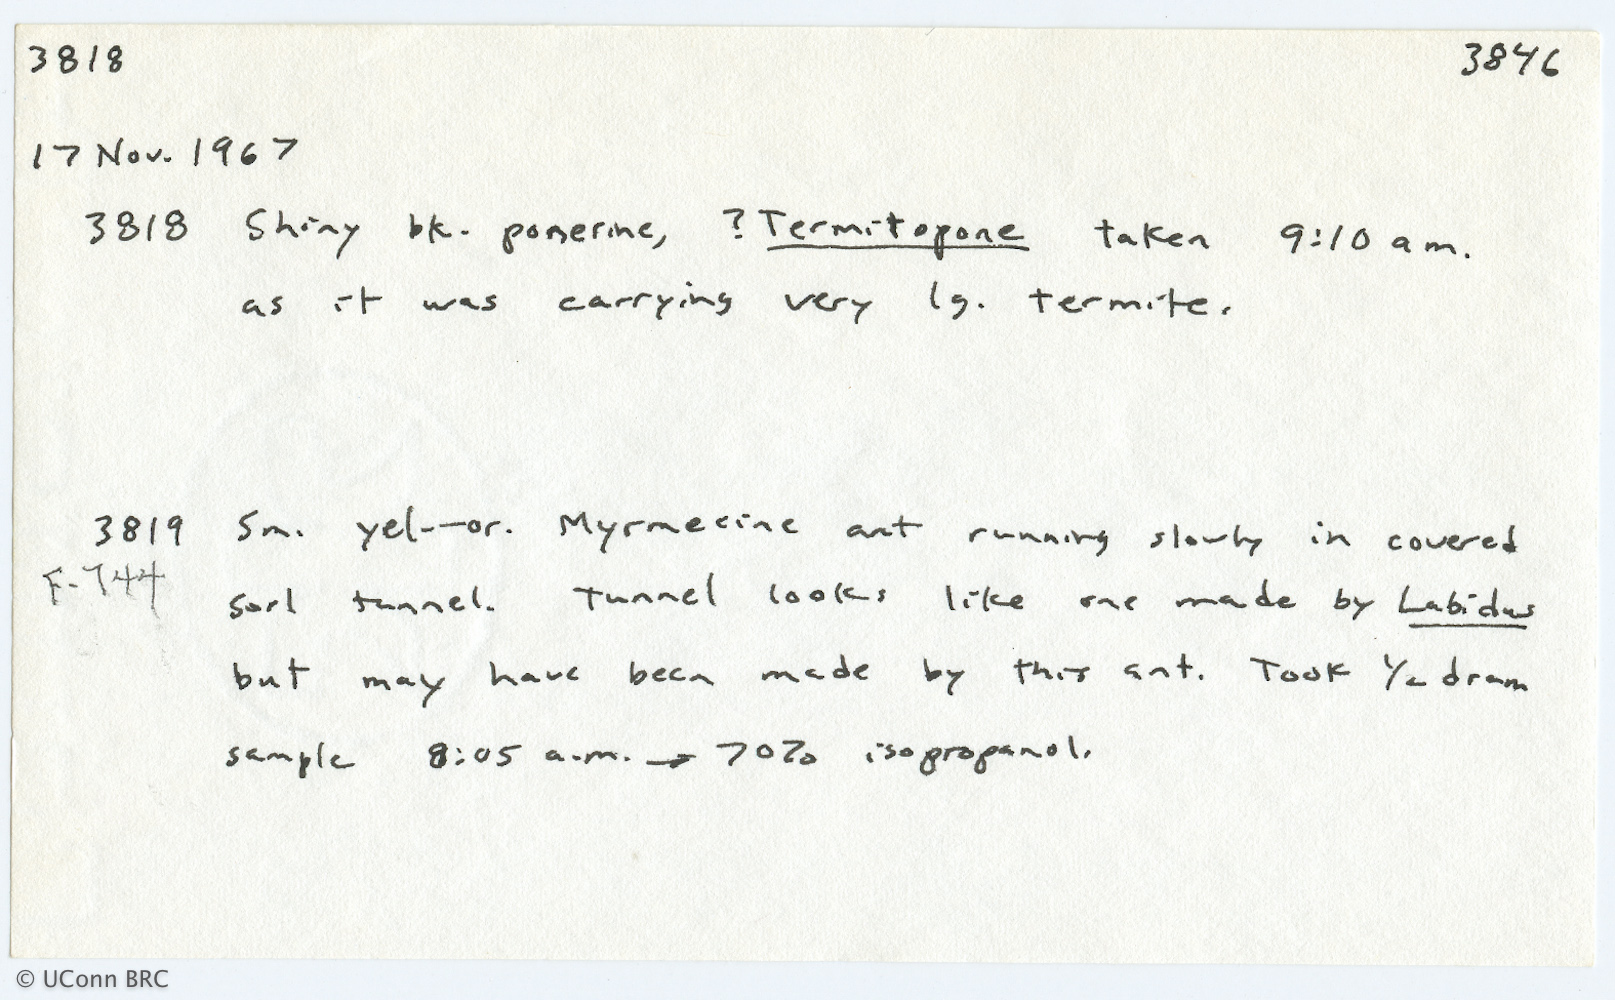 3818 3846
17 Nov. 1967
3818 Shiny bk. ponerine, ?Termitopone taken 9:10 am.
as it was carrying very lg. termite.
3819 Sm. yel-or. Myrmecine ant running slowly in covered
F-744 soil tunnel. Tunnel looks like one made by Labidus
but may have been made by this ant. Took 1/2 dram
sample 8:05 a.m. → 70% isopropanol.
© UConn BRC